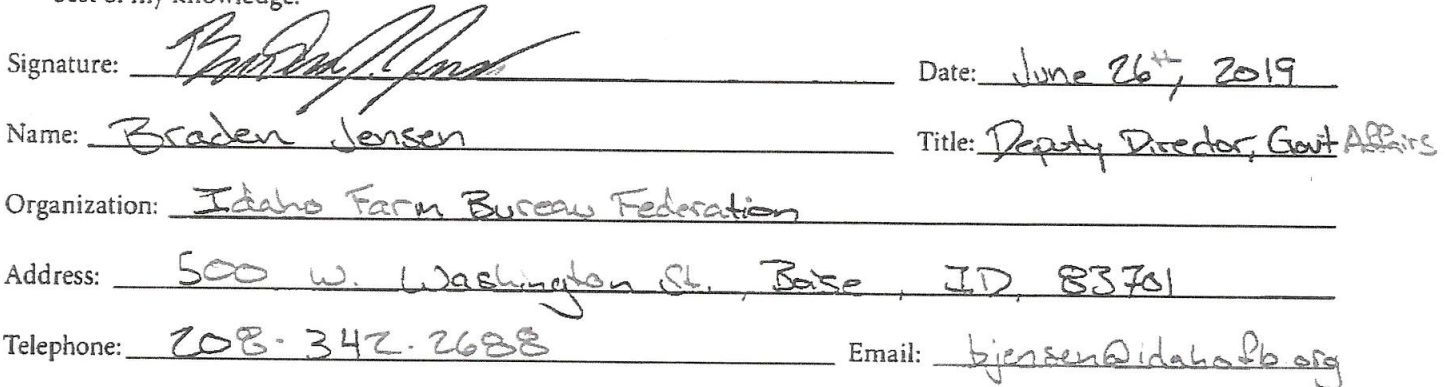 best of my knowledge.
Signature: Date: June 26th, 2019
Name: Braden Jensen Title: Deputy Director, Govt Affairs
Organization: Idaho Farm Bureau Federation
Address: 500 W. Washington St., Boise, ID, 83701
Telephone: 208-342-2688 Email: bjensen@idahofb.org